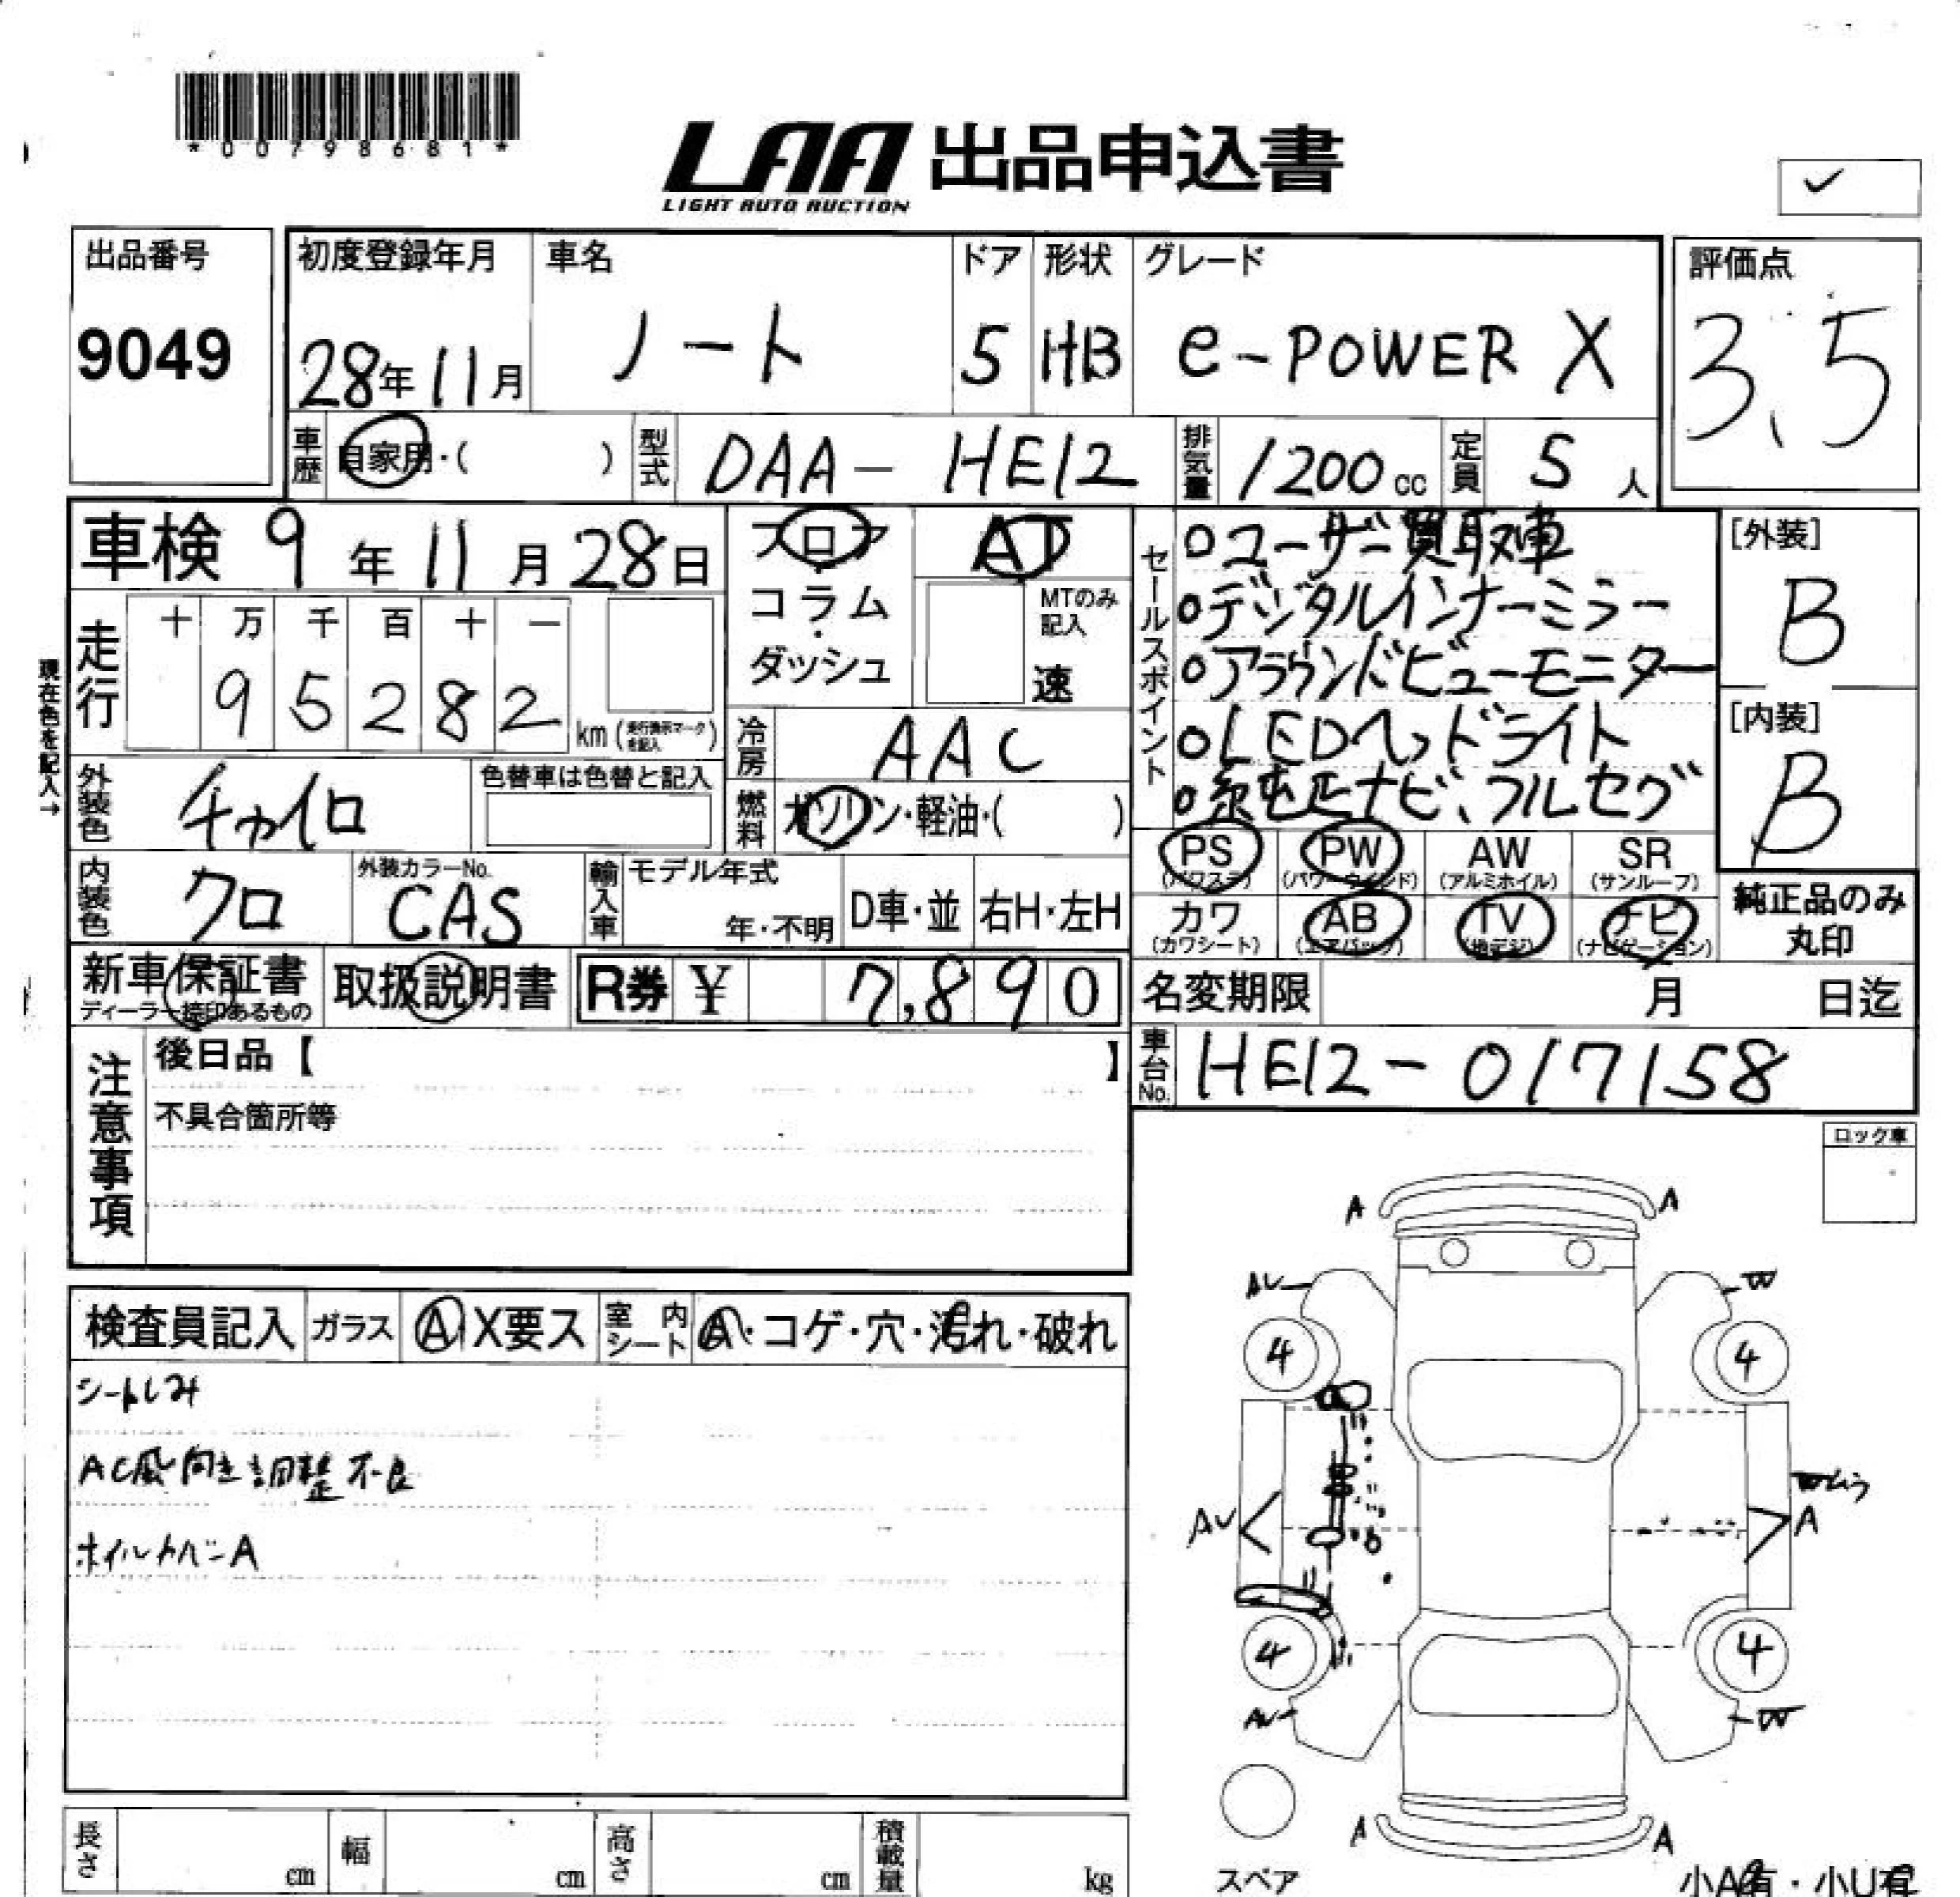 *00798681*
LAA 出品申込書
LIGHT AUTO AUCTION
出品番号
9049
初度登録年月
28年11月
車名
ノート
ドア
5
形状
HB
グレード
e-POWER X
評価点
3.5
車歴 自家用・( )
型式 DAA-HE12
排気量 1200cc
定員 5人
車検 9年11月28日
フロア
コラム
・
ダッシュ
AT
MTのみ
記入
速
走行
十 万 千 百 十 一
9 5 2 8 2
km(走行表示マークを記入)
現在色を記入→
外装色 チャイロ
色替車は色替と記入
冷房 AAC
燃料 ガソリン・軽油・( )
内装色 クロ
外装カラーNo.
CAS
輸入車
モデル年式
年・不明
D車・並
右H・左H
新車保証書
ディーラー捺印あるもの
取扱説明書
R券 ¥ 7,890
セールスポイント
○ユーザー買取車
○デジタルインナーミラー
○アラウンドビューモニター
○LEDヘッドライト
○純正ナビ、フルセグ
[外装]
B
[内装]
B
PS
(パワステ)
PW
(パワーウインド)
AW
(アルミホイル)
SR
(サンルーフ)
カワ
(カワシート)
AB
(エアバック)
TV
(地デジ)
ナビ
(ナビゲーション)
純正品のみ
丸印
名変期限 月 日迄
車台No. HE12-017158
注意事項
後日品【 】
不具合箇所等
ロック車
検査員記入
ガラス A X要ス
室内シート A・コゲ・穴・汚れ・破れ
シートしみ
AC風向き調整不良
ホイルカバーA
A A
AU W
4 4
Wムラ
AU A
4 4
AU W
A A
スペア
小A有・小U有
長さ cm
幅 cm
高さ cm
積載量 kg